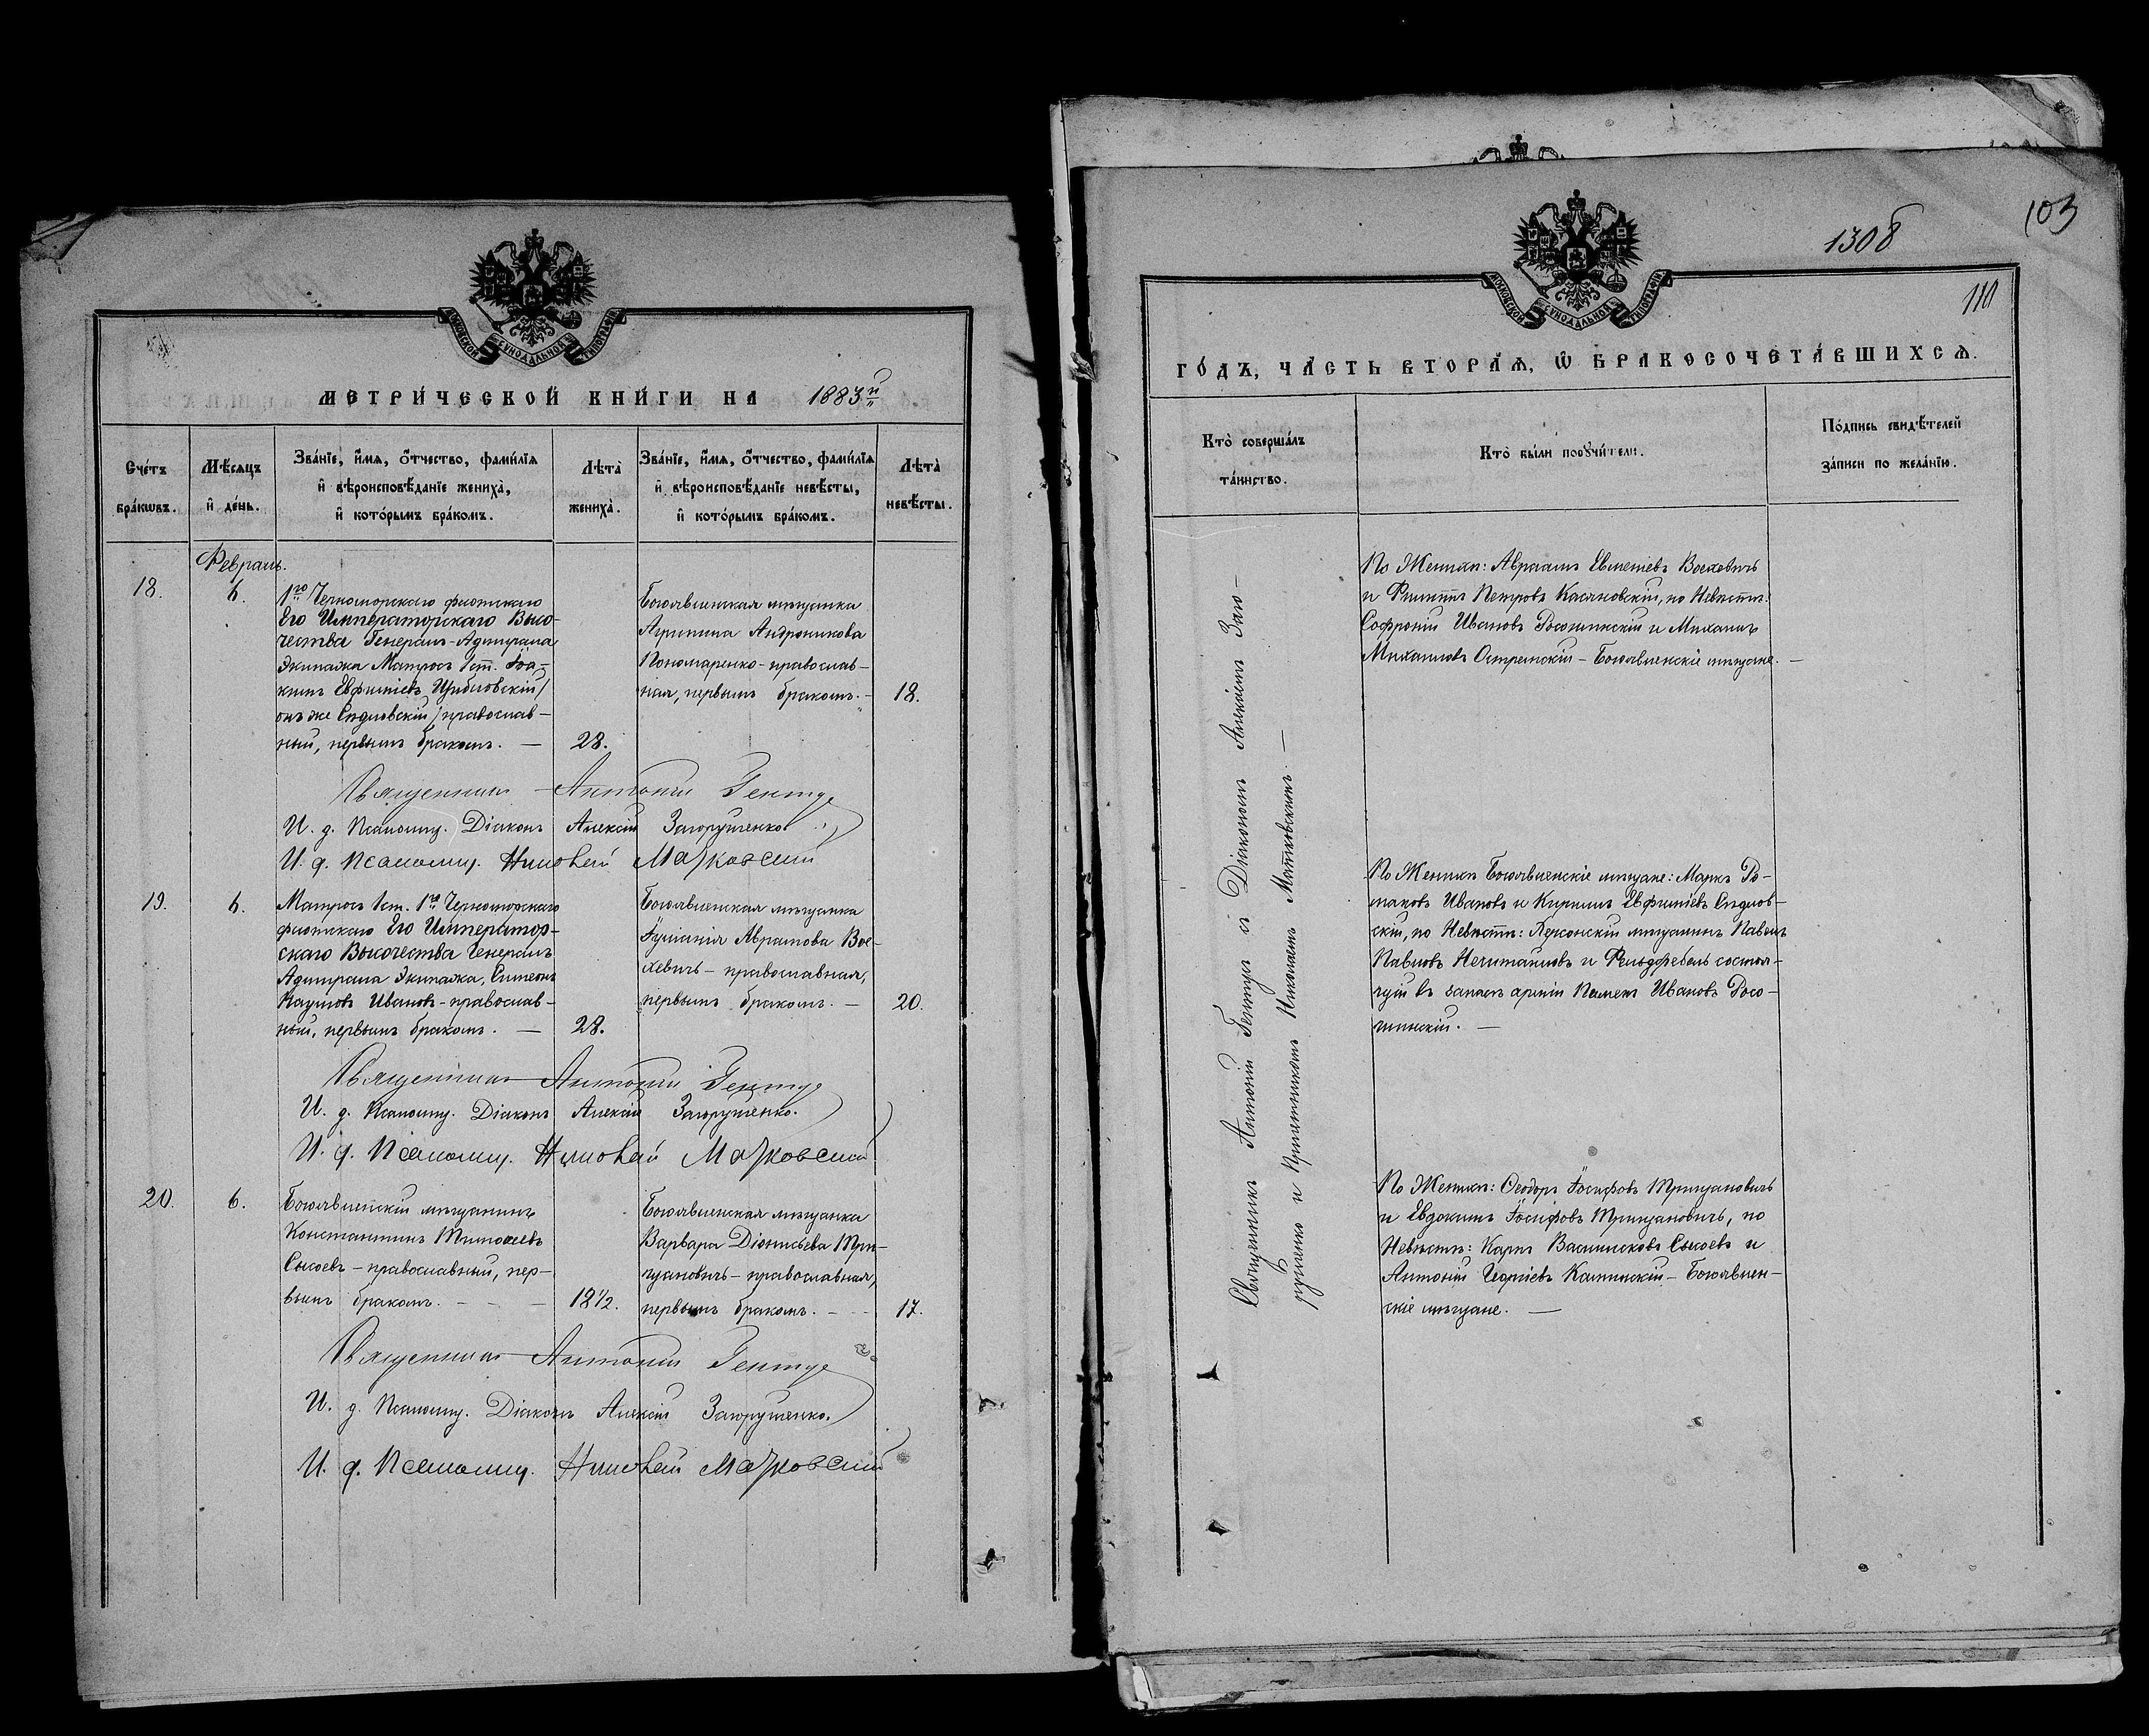 МОСКОВСКОЙ СУНОДАЛЬНОЙ ТИПОГРАФІИ
МЕТРИ́ЧЕСКОЙ КНИ́ГИ НА 1883й
Сче́тъ бра́кωвъ.
Мѣ́сяцъ и҆ де́нь.
Зва́нїе, и҆́мя, ѻ҆́тчество, фами́лїя и҆ вѣроисповѣ́данїе жениха̀, и҆ кото́рымъ бра́комъ.
Лѣта̀ жениха̀.
Зва́нїе, и҆́мя, ѻ҆́тчество, фами́лїя и҆ вѣроисповѣ́данїе невѣ́сты, и҆ кото́рымъ бра́комъ.
Лѣта̀ невѣ́сты.
Февраль.
18.
6.
1го Черноморскаго флотскаго
Его Императорскаго Высо-
чества Генералъ-Адмирала
Экипажа Матросъ 1 ст. Іоа-
кимъ Евфиміевъ Цибловскій/
онъ же Сѣдловскій/православ-
ный, первымъ бракомъ. —
28.
Богоявленская мѣщанка
Агрипина Андроникова
Пономаренко-православ-
ная, первымъ бракомъ. -
18.
Священникъ Антоній Гентуе
И. д. Псаломщ. Діаконъ Алексій Загорушенко
И. д. Псаломщ. Николай
19.
6.
Матросъ 1 ст. 1го Черноморскаго
флотскаго Его Император-
скаго Высочества Генералъ
Адмирала Экипажа, Симеонъ
Наумовъ Ивановъ-православ-
ный, первымъ бракомъ. —
28.
Богоявленская мѣщанка
Іуліанія Аврамова Вое-
ховичъ - православная,
первымъ бракомъ. —
20.
Священникъ Антоній Гентуе
И. д. Псаломщ. Діаконъ Алексій Загорушенко.
И. д. Псаломщ. Николай
20.
6.
Богоявленскій мѣщанинъ
Константинъ Тимоѳеевъ
Сысоевъ - православный, пер-
вымъ бракомъ. - - -
18½.
Богоявленская мѣщанка
Варвара Діонисьева Три-
щановичъ - православная,
первымъ бракомъ. - -
17.
Священникъ Антоній Гентуе
И. д. Псаломщ. Діаконъ Алексій Загорушенко.
И. д. Псаломщ. Николай
103
1308
110
МОСКОВСКОЙ СУНОДАЛЬНОЙ ТИПОГРАФІИ
ГО́ДЪ, ЧА́СТЬ ВТОРА́Я, Ѽ БРАКОСОЧЕТА́ВШИХСЯ.
Кто̀ соверша́лъ та́инство.
Кто̀ бы́ли порꙋчи́тели.
По́дпись свидѣ́телей за́писи по жела́нїю.
Священникъ Антоній Гентуе съ Діакономъ Алексіемъ Заго-
рушенко и Причетникомъ Николаемъ —
По Женихѣ: Авраамъ Евменіевъ Воеховичъ
и Филиппъ Петровъ Касяновскій, по Невѣстѣ:
Софроній Ивановъ Росошинскій и Михаилъ
Михаиловъ Островскій - Богоявленскіе мѣщане. —
По Женихѣ Богоявленскіе мѣщане: Маркъ Ро-
мановъ Ивановъ и Кириллъ Евфиміевъ Сѣдлов-
скій, по Невѣстѣ: Херсонскій мѣщанинъ Павелъ
Павловъ Нечитайловъ и Фельдфебель состоя-
щій въ запасѣ арміи Иванъ Росо-
шинскій. —
По Женихѣ: Ѳеодоръ Іосифовъ Трищановичъ
и Евдокимъ Іосифовъ Трищановичъ, по
Невѣстѣ: Карпъ Василисковъ Сысоевъ и
Антоній Георгіевъ Калинскій - Богоявлен-
скіе мѣщане. —